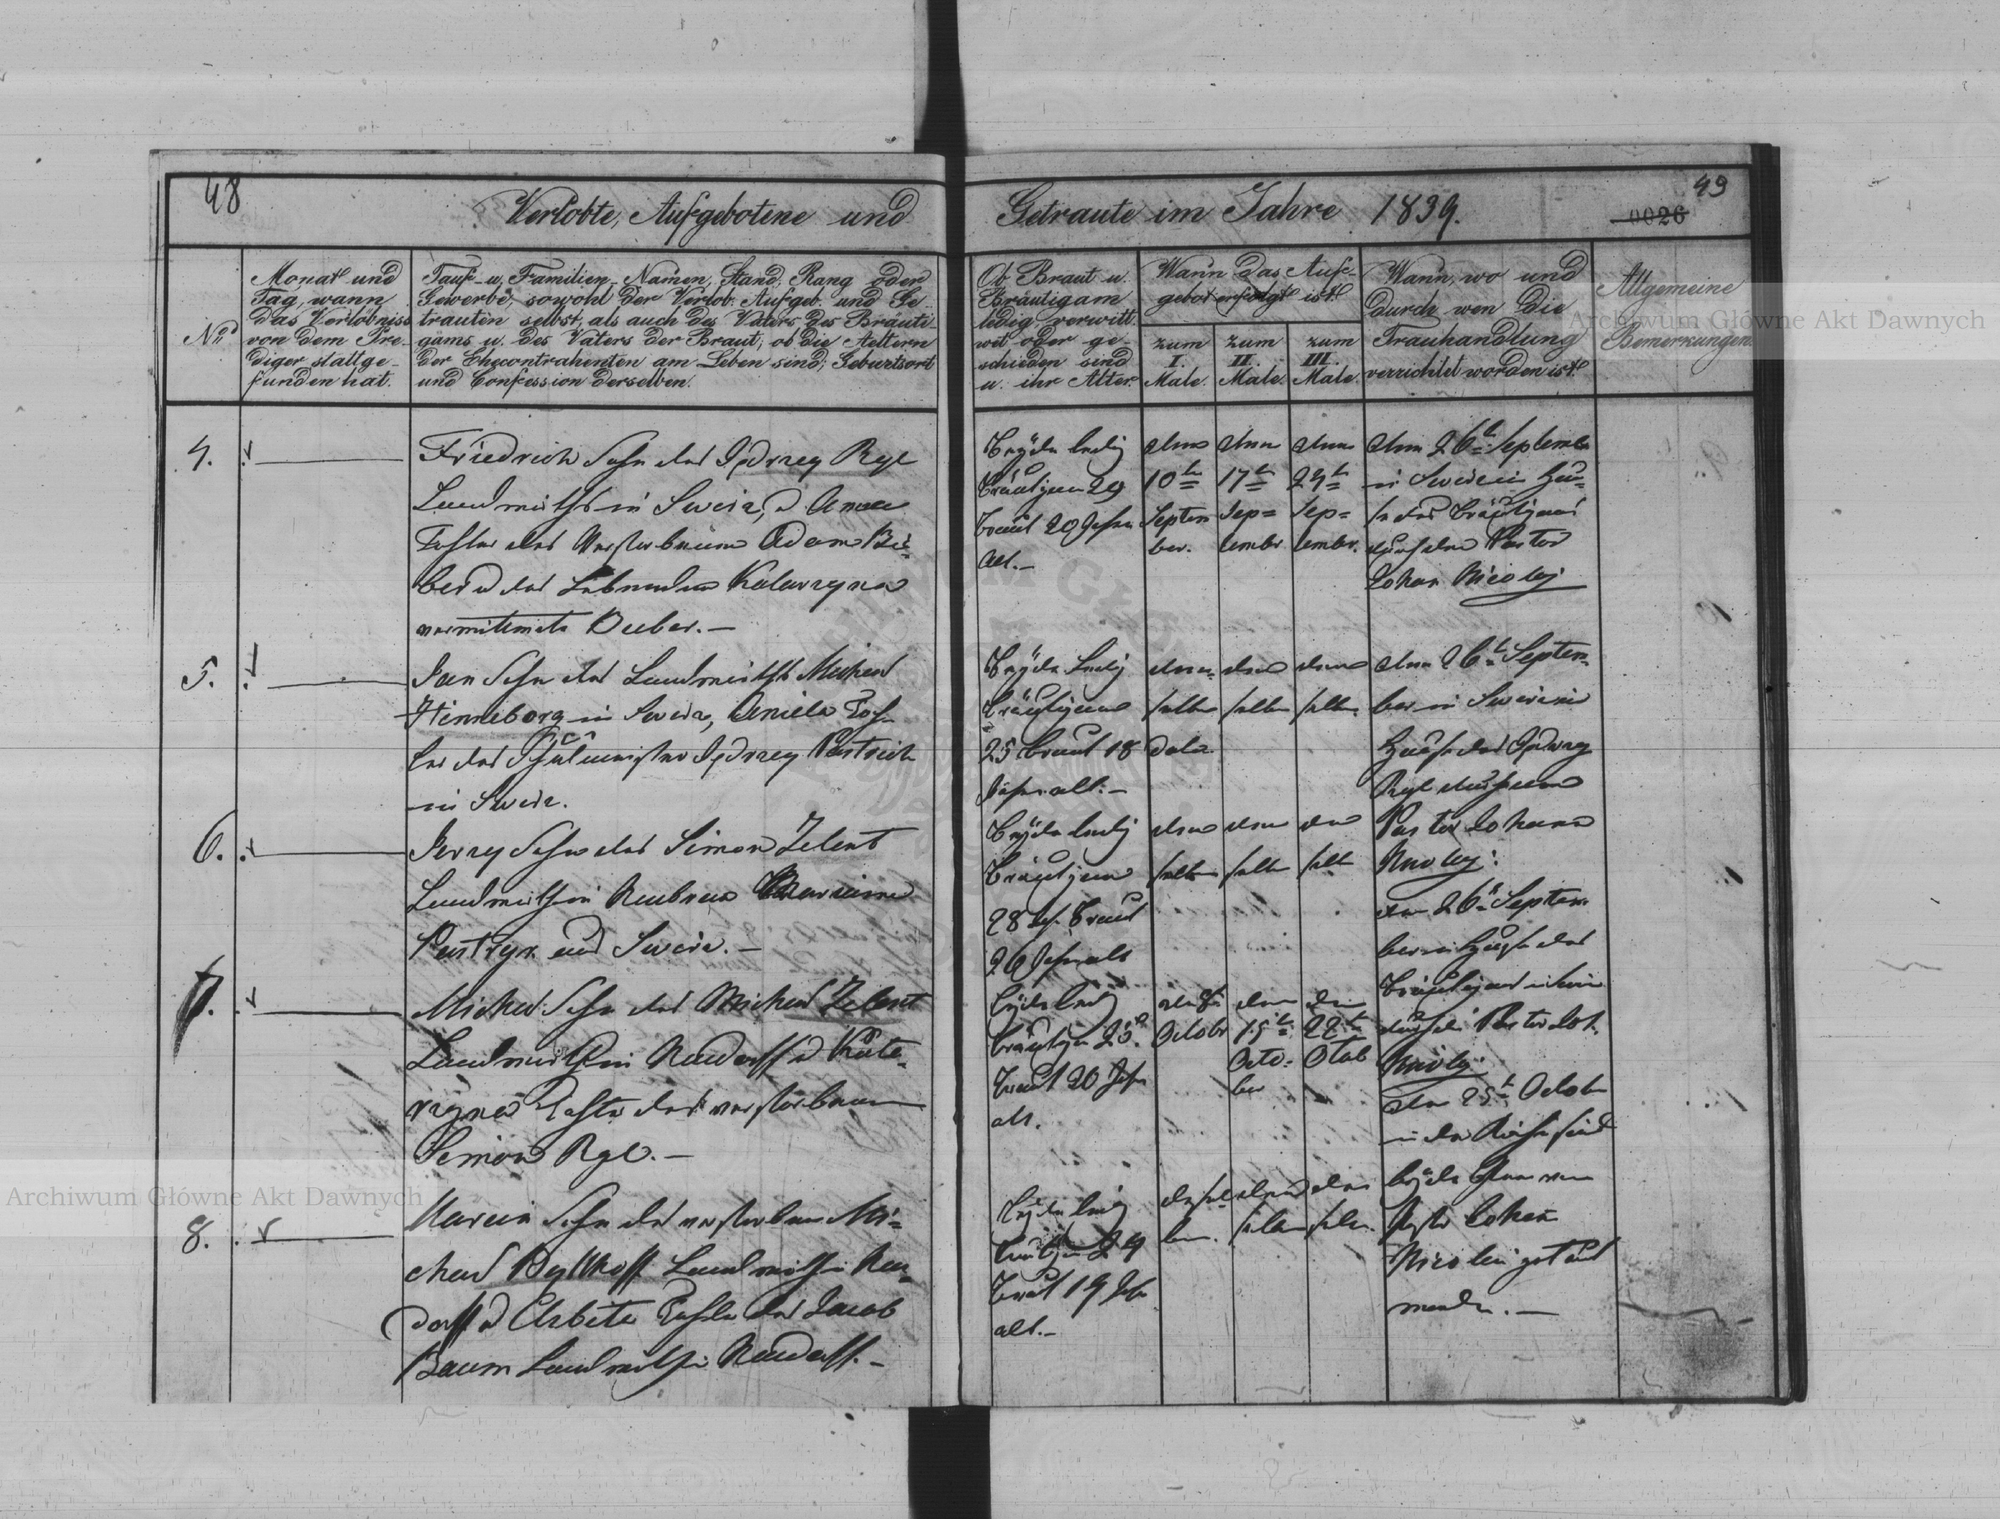 48
Verlobte, Aufgebotene und
Getraute im Jahre 1839.
49
0026
Nro
Monat und
Tag, wann
das Verlöbniss
von dem Pre-
diger stattge-
funden hat.
Tauf- u. Familien-Namen, Stand, Rang oder
Gewerbe, sowohl der Verlob. Aufgeb. und Ge-
trauten selbst, als auch des Vaters des Bräuti-
gams u. des Vaters der Braut; ob die Aeltern
der Ehecontrahenten am Leben sind; Geburtsort
und Confession derselben.
Ob Braut u.
Bräutigam
ledig verwitt-
wet oder ge-
schieden sind
u. ihr Alter.
Wann das Auf-
gebot erfolgt ist
zum
I.
Male.
zum
II.
Male.
zum
III.
Male.
Wann, wo und
durch wen die
Trauhandlung
verrichtet worden ist.
Allgemeine
Bemerkungen.
Archiwum Główne Akt Dawnych
4.
Friedrich Sohn des Jędrzey Ryl
Landwirths in Sweir, d Anna
Tochter des Verstorbenen Adam Bie-
ber u der Lebenden Katarzyna
verwittweten Bieber. —
Beyde ledig
Bräutigam 29
Braut 20 Jahr
alt. —
den
10ten
Septem
ber.
den
17ten
Sep=
tember
den
24ten
Sep=
tember.
den 26ten September
in Sweir im Hau-
se des Bräutigams
durch den Pastor
Johan Nicolaj
5.
Jan Sohn des Landwirths Michael
Henneborg in Sweir, Aniela Toch
ter des Schulmeister Jędrzey Pastrich
in Sweir.
Beyde ledig
Bräutigam
25 Braut 18
Jahr alt. —
den=
selben
dato
den
selben
den
selben
den 26ten Septem-
ber in Sweir im
Hause des Jędrzey
Ryl durch den
Pastor Johann
Nicolaj.
6.
Jerzy Sohn des Simon Zelent
Landwirth in Neubrun
Pastryk aus Sweir. —
Beyde ledig
Bräutigam
28 Braut
26 Jahr alt
den
selben
den
selben
den
selb
den 26ten Septem
ber im Hause des
Bräutigams
durch den Pastor Joh.
Nicolaj
7.
Michael Sohn des Michael Zelent
Landwirth in Neudorff d Kata-
rzyna Tochter des verstorbenen
Simon Ryl. —
Beyde ledig
Bräutigam 25
Braut 20 Jahr
alt.
den 8ten
October
den
15ten
Octo-
ber
den
22ten
Octob
den 25ten Octob
in der Kirche sind
beyde Paar vom
Pastor Johan
Nicolai getraut
worden. —
8.
Marcin Sohn des verstorbenen Mi=
chael Bytkoff Landwirth in Neu-
dorff d Elzbieta Tochter des Jacob
Baum Landwirth in Neudorff. —
Beyde ledig
Bräutigam 24
Braut 19 Jahr
alt. —
densel-
ben.
den
selben
den
selben
Archiwum Główne Akt Dawnych